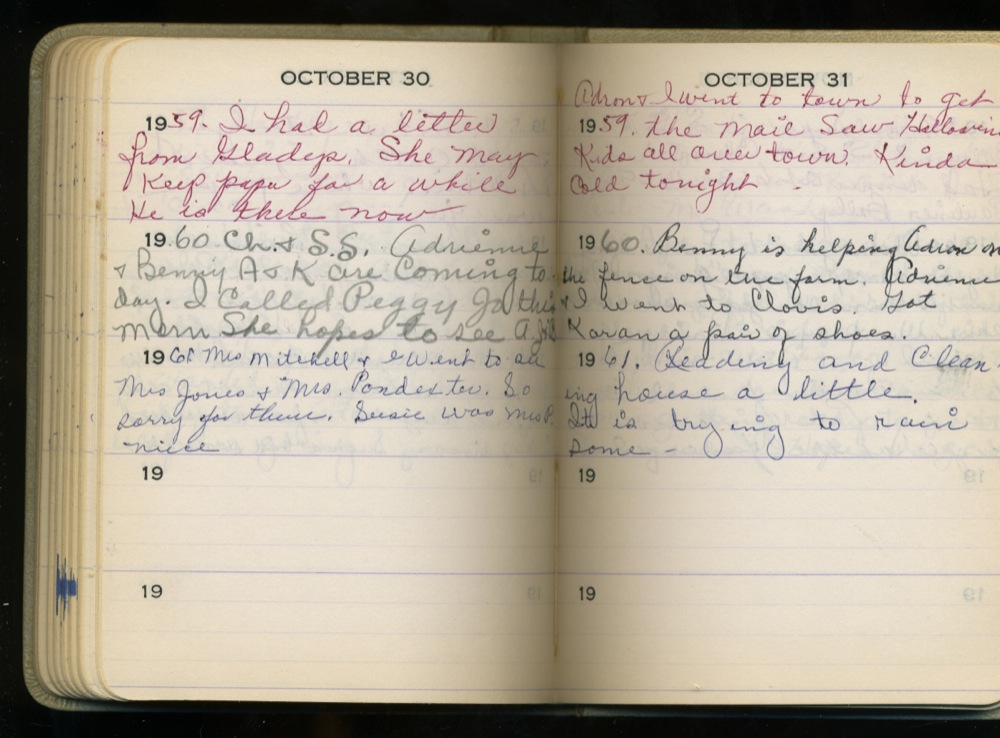 OCTOBER 30
1959. I had a letter
from Gladys. She may
Keep papa for a while
He is there now
1960 Ch. & S.S. Adrienne
& Benny A & K are Coming to
day. I Called Peggy Jo this
morn She hopes to see A
1961 Mrs Mitchell & I went to
Mrs Jones & Mrs. Pondexter. So
sorry for them. Susie was Mrs P.
niece
19
19
OCTOBER 31
Adron & I went to town to get
1959. the mail Saw Hallowein
Kids all over town. Kinda
Cold tonight.
1960. Benny is helping Adron on
the fence on the farm. Adrienne
& I went to Clovis. Got
Karan a pair of shoes.
1961. Reading and Clean-
ing house a little.
It is trying to rain
some -
19
19